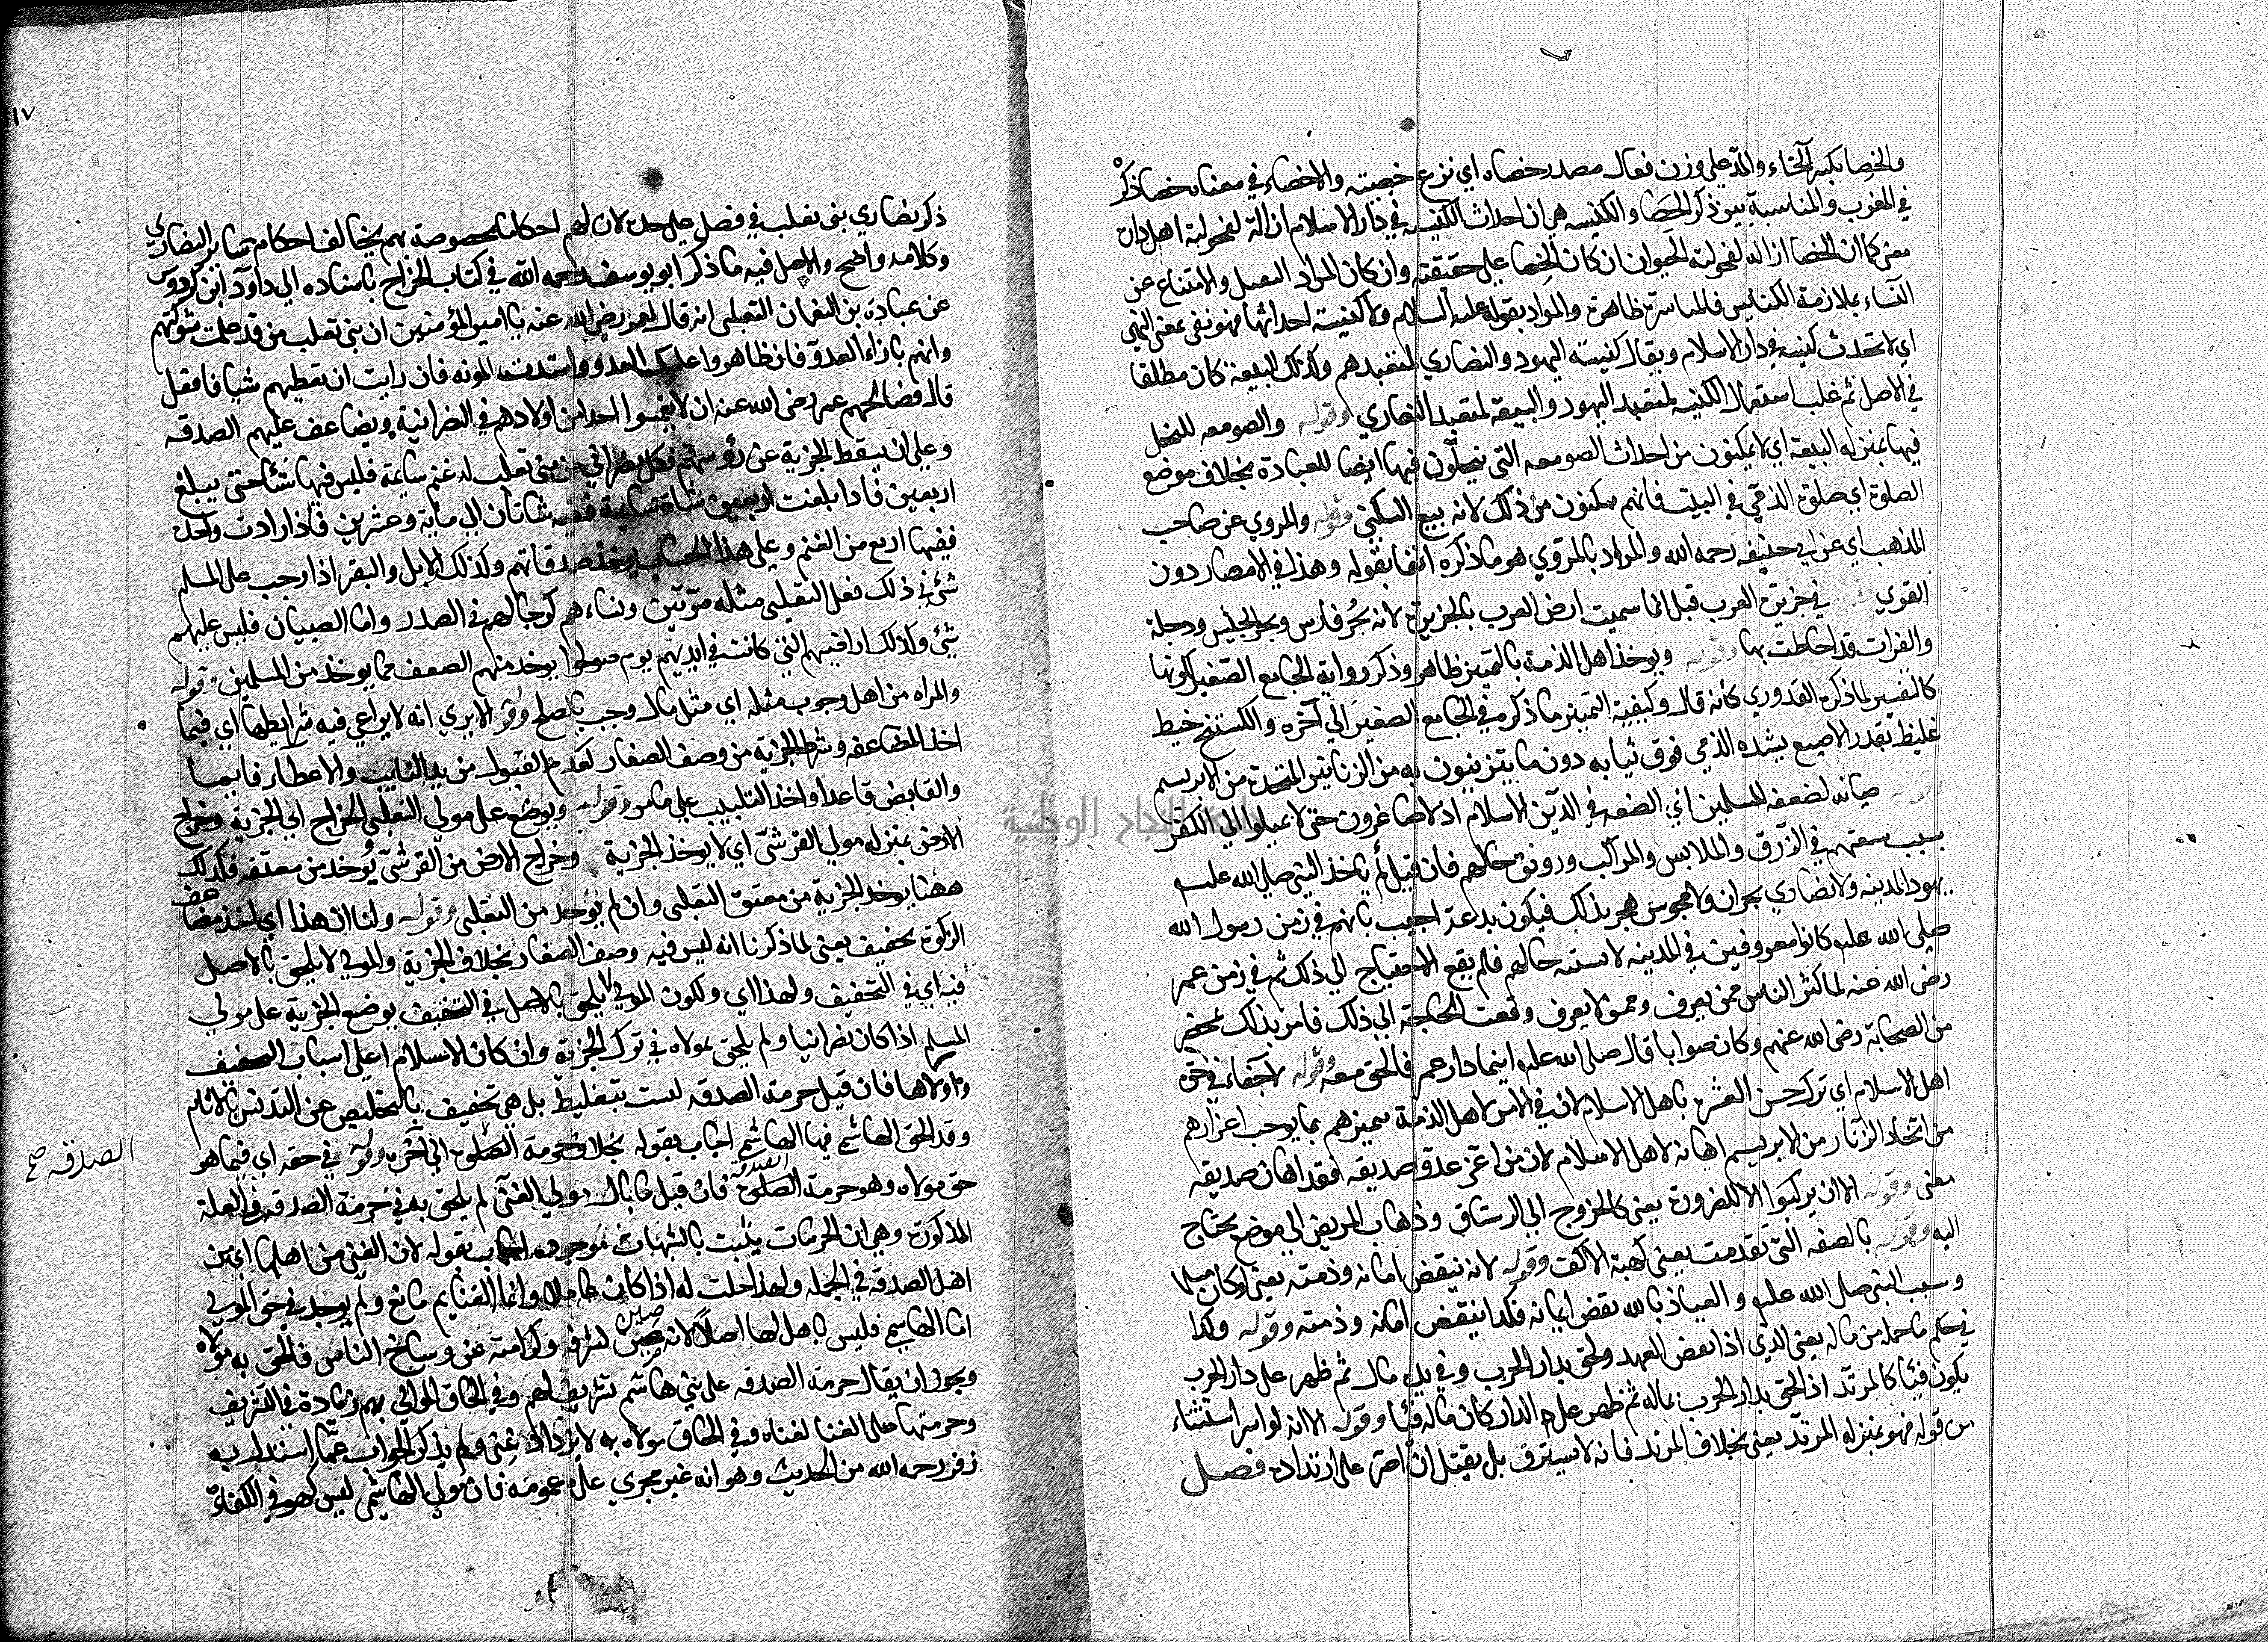 والخصا بكسر الخاء والمد على وزن فعال مصدر خصاه اي نزع خصيته والاخصاء في معناه خصا ذكر
في المغرب والمناسبة بين ذكر الخصا والكنيسه هي ان احداث الكنيسه في دار الاسلام ازالة لفحولية اهل دار
معنى كما ان الخصا ازاله لفحولية الحيوان ان كان الخصا على حقيقته وان كان المراد التبتل والامتناع عن
النساء بملازمة الكنايس فالمناسبة ظاهرة والمراد بقوله عليه السلام ولا كنيسة احداثها فهو نفي بمعنى النهي
اي لا تحدث كنيسه في دار الاسلام ويقال كنيسته اليهود والنصاري لمتعبدهم وكذلك البيعة كان مطلقا
في الاصل ثم غلب استعمال الكنيسه لمتعبد اليهود والبيعة لمتعبد النصاري وقوله والصومعه للتخلي
فيها بمنزله البيعة اي لا يمكنون من احداث الصومعه التي يتخلون فيها ايضا للعبادة بخلاف موضع
الصلوة اي صلوة الذمي في البيت فانهم يمكنون من ذلك لانه تبع السكنى وقوله والمروي عن صاحب
المذهب اي عن ابي حنيفه رحمه الله والمراد بالمروي هو ما ذكره انفا بقوله وهذا في الامصار دون
القري في جزيرة العرب قيل انما سميت ارض العرب بالجزيرة لانه بحر فارس وبحر الحبش ودجلة
والفرات قد احاطت بها وقوله ويوخذ اهل الذمة بالتميز ظاهر وذكر رواية الجامع الصغير لكونها
كالتفسير لما ذكره القدوري كانه قال وكيفية التمييز ما ذكره في الجامع الصغير الى آخره والكستيج خيط
غليظ بقدر الاصبع يشده الذمي فوق ثيابه دون ما يتزينون به من الزنانير المتخذة من الابريسم
وقوله صيانه لضعفه المسلمين اي الضعفه في الدين الاسلام اذ لاصاغرون حتى لا يميلوا الي الكفر
بسبب سعتهم في الرزق والملابس والمراكب ورونق حالهم فان قيل لم ياخذ النبي صلى الله عليه
يهود المدينه ولا نصاري نجران ولا مجوس هجر بذلك فيكون بدعة اجيب بانهم في زمن رسول الله
صلى الله عليه كانوا معروفين في المدينه لا يشتبه حالهم فلم يقع الاحتياج الي ذلك ثم في زمن عمر
رضى الله عنه لما كثر الناس ممن يعرف وممن لا يعرف وقعت الحاجة الي ذلك فامر بذلك بمحضر
من الصحابة رضى الله عنهم وكان صوابا قال صلى الله عليه اينما دار عمر فالحق معه وقوله جفاء في حق
اهل الاسلام اي ترك حسن العشرة باهل الاسلام لان في الامر لاهل الذمة تميزهم بما يوجب اعزازهم
من اتخاذ الزنار من الابريسم اهانه لاهل الاسلام لان من اعز عدو صديقه فقد اهان صديقه
معنى وقوله الا ان يركبوا الا للضرورة يعني كالخروج الي الرستاق وذهاب المريض الي موضع يحتاج
اليه وقوله بالصفه التي تقدمت يعني كهيئة الاكف وقوله لانه ينقض امانه وذمته يعني لو كان مسلما
وسب النبي صلى الله عليه والعياذ بالله نقض ايمانه فكذا ينقض امانه وذمته وقوله وكذا
في حكم ما حمله من ماله يعني الذمي اذا نقض العهد ولحق بدار الحرب وفي يده مال ثم ظهر على دار الحرب
يكون فيئا كالمرتد اذا لحق بدار الحرب بماله ثم ظهر على الدار كان ماله فيئا وقوله الا انه لو اسر استثناء
من قوله فهو بمنزله المرتد يعني بخلاف المرتد فانه لا يسترق بل يقتل ان اصر على ارتداده فصل
١١٧
ذكر نصاري بني تغلب في فصل على حدة لان لهم احكاما مخصوصة بهم يخالف احكام سائر النصاري
وكلامه واضح والاصل فيه ما ذكر ابو يوسف رحمه الله في كتاب الخراج باسناده الي داود ابن كردوس
عن عبادة بن النعمان التغلبي انه قال لعمر رضى الله عنه يا امير المؤمنين ان بني تغلب من قد علمت شوكتهم
وانهم بازاء العدو فان ظاهروا عليك العدو واشتدت المونه فان رايت ان تعطيهم شيا فافعل
قال فصالحهم عمر رضى الله عنه ان لا يغمسوا احدا من اولادهم في النصرانية ويضاعف عليهم الصدقه
وعلى ان يسقط الجزية عن رؤسهم فكل نصراني من بني تغلب له غنم سايمة فليس فيها شئ حتى يبلغ
اربعين فاذا بلغت اربعين شاة سايمة ففيه شاتان الي ماية وعشرين فاذا زادت واحدة
ففيها اربع من الغنم وعلى هذا الحساب يوخذ صدقاتهم وكذلك الابل والبقر اذا وجب على المسلم
شئ في ذلك فعلى التغلبي مثله مرتين ونساءهم كرجالهم في الصدقة واما الصبيان فليس عليهم
شئ وكذلك اراضيهم التي كانت في ايديهم يوم صولحوا يوخذ منهم الضعف مما يوخذ من المسلمين وقوله
والمراه من اهل وجوب مثله اي مثل مال وجب بالصلح وقوله الا يري انه لا يراعي فيه شرايطها اي فيما
اخذ المضاعفه وشرط الجزية من وصف الصغار كعدم القبول من يد النايب والاعطاء قايما
والقابض قاعدا واخذ التلبيب علي ما مر وقوله ويوضع على مولي التغلبي الخراج اي الجزية وخراج
الارض بمنزله مولي القرشي اي لا يوخذ الجزية وخراج الارض من القرشي ويوخذ من معتقه فكذلك
ههنا يوخذ الجزية من معتق التغلبي وان لم يؤخذ من التغلبي وقوله ولنا ان هذا اي اخذ مضاعف
الزكوة تخفيف يعني لما ذكرنا انه ليس فيه وصف الصغار بخلاف الجزية والمولي لا يلحق بالاصل
فيه اي في التخفيف ولهذا اي ولكون المولي لا يلحق بالاصل في التخفيف يوضع الجزية على مولي
المسلم اذا كان نصرانيا ولم يلحق بمولاه في ترك الجزية وان كان الاسلام اعلى اسباب التخفيف
واولاها فان قيل حرمة الصدقه ليست بتغليظ بل هي تخفيف بالتخليص عن التدنس بالاثام
وقد الحق الهاشمي فيها الهاشم اجاب بقوله بخلاف حرمة الصدقة الي آخره وقوله في حقه اي فيما هو
الصدقه صح
حق مولاه وهو حرمة الصدقة فان قيل ما بال مولي الغني لم يلحق به في حرمة الصدقه والعلة
المذكورة وهي ان الحرمات يثبت بالشبهات موجوده اجاب بقوله لان الغني من اهلها اي من
اهل الصدقه في الجمله ولهذا حلت له اذا كان عاملا وانما الغنا يم مانع ولم يوجد في حق المولي
اما الهاشمي فليس باهل لها اصلا لانه صين لشرفه وكرامته عن وساخ الناس فالحق به مولاه
ويجوز ان يقال حرمة الصدقه على بني هاشم تشريف لهم وفي الحاق الموالي بهم زيادة في التشريف
وحرمتها على الغنا لغناه وفي الحاق مولاه به لا يزداد غنى ولم يذكر الجواب عما استدل به
زفر رحمه الله من الحديث وهو انه غير مجري على عمومه فان مولي الهاشمي ليس كهو في الكفاءة
دار النجاح الوطنية